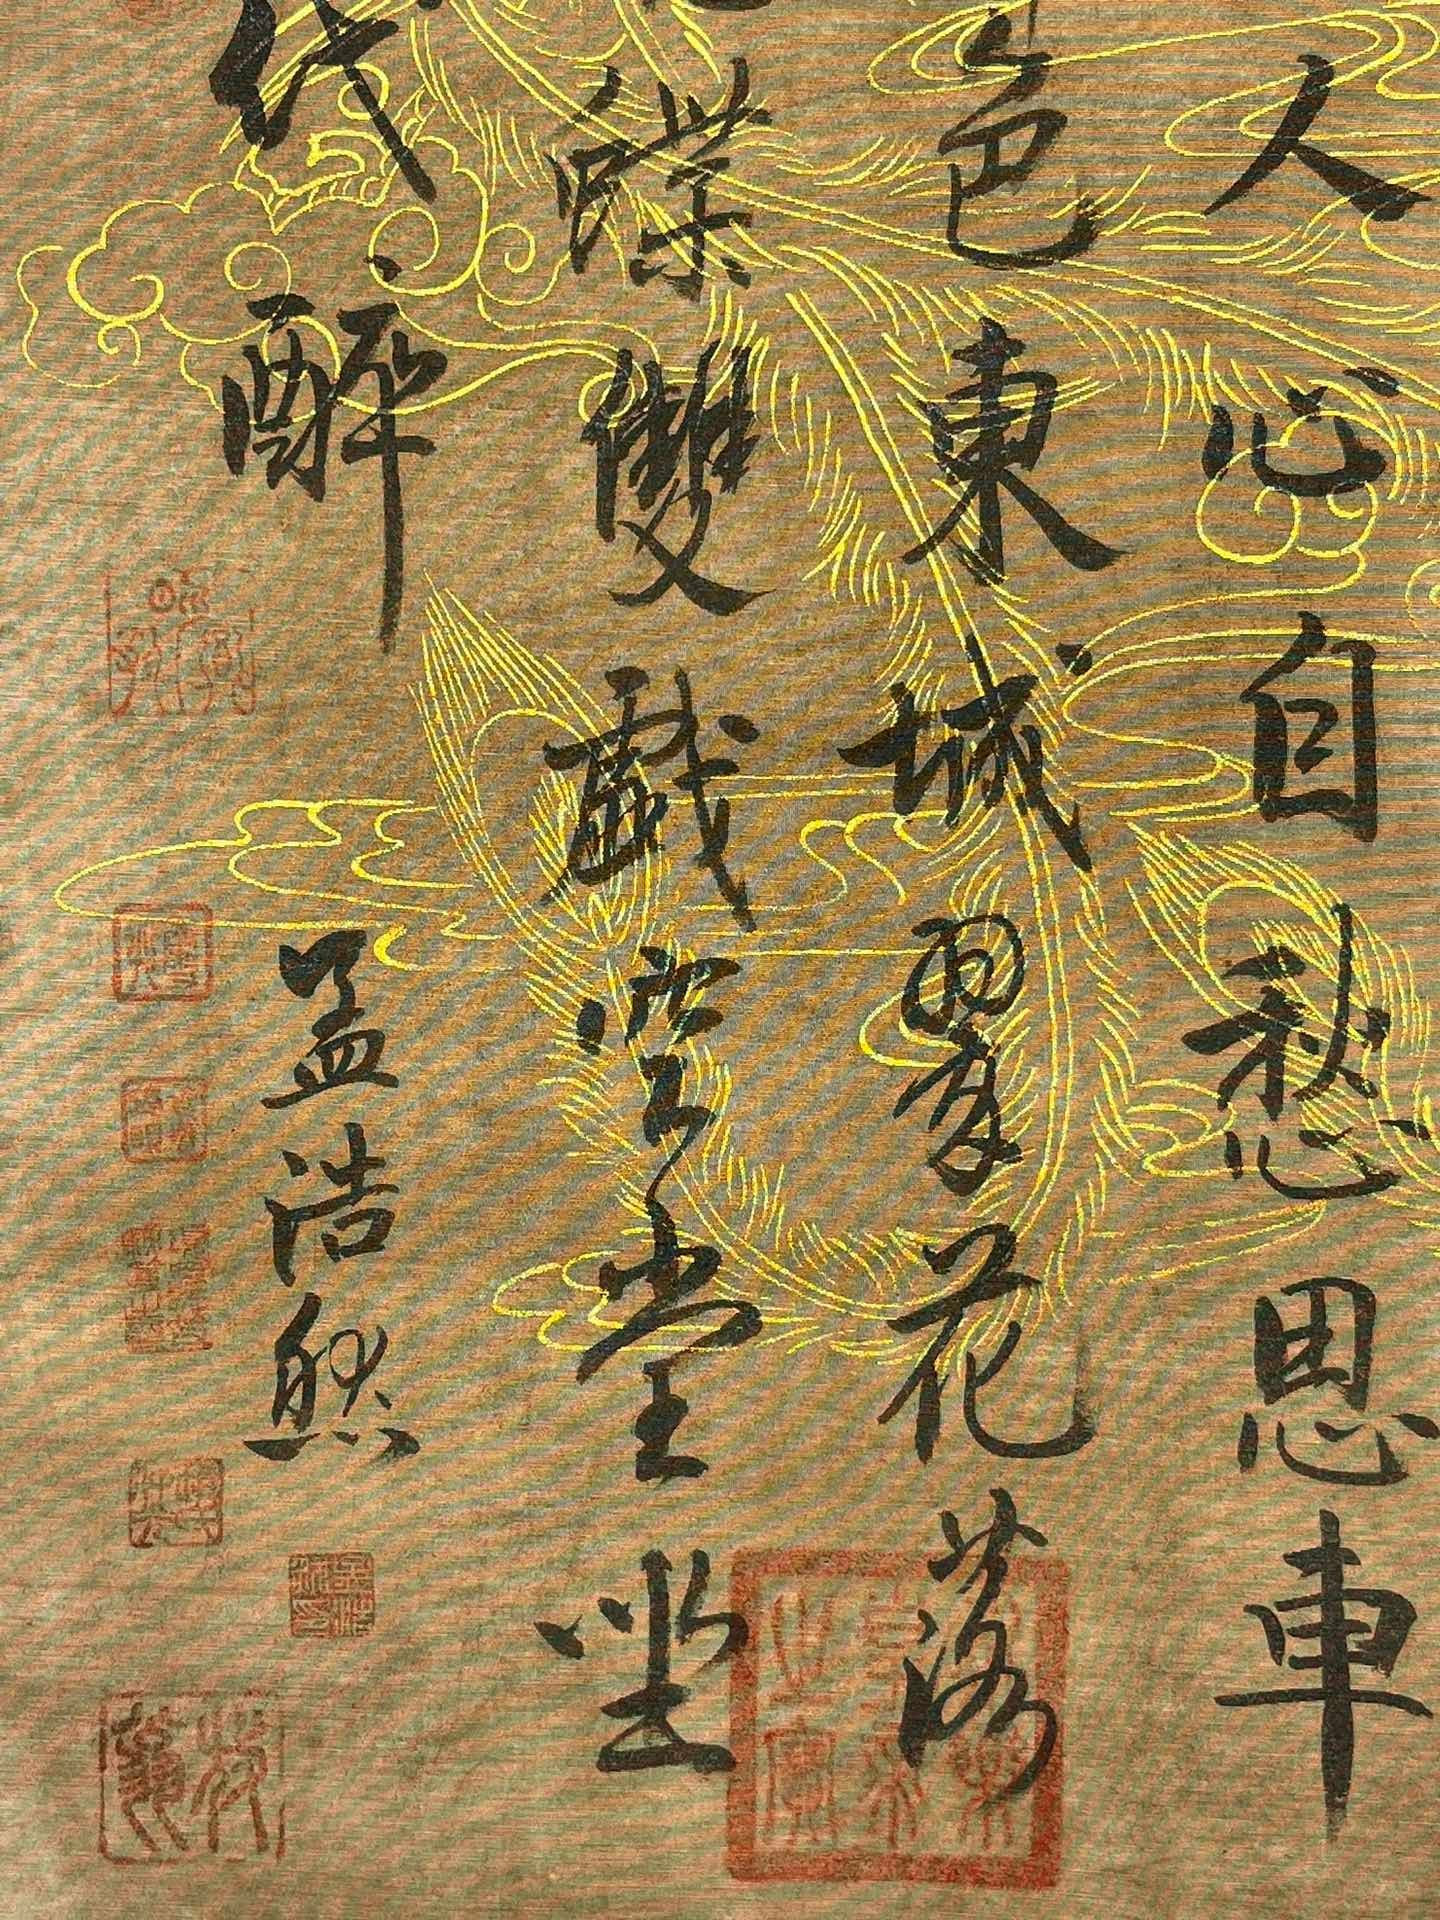 人心自愁思車
色東城翠花落
蝶雙戲空堂坐
代醉
孟浩然